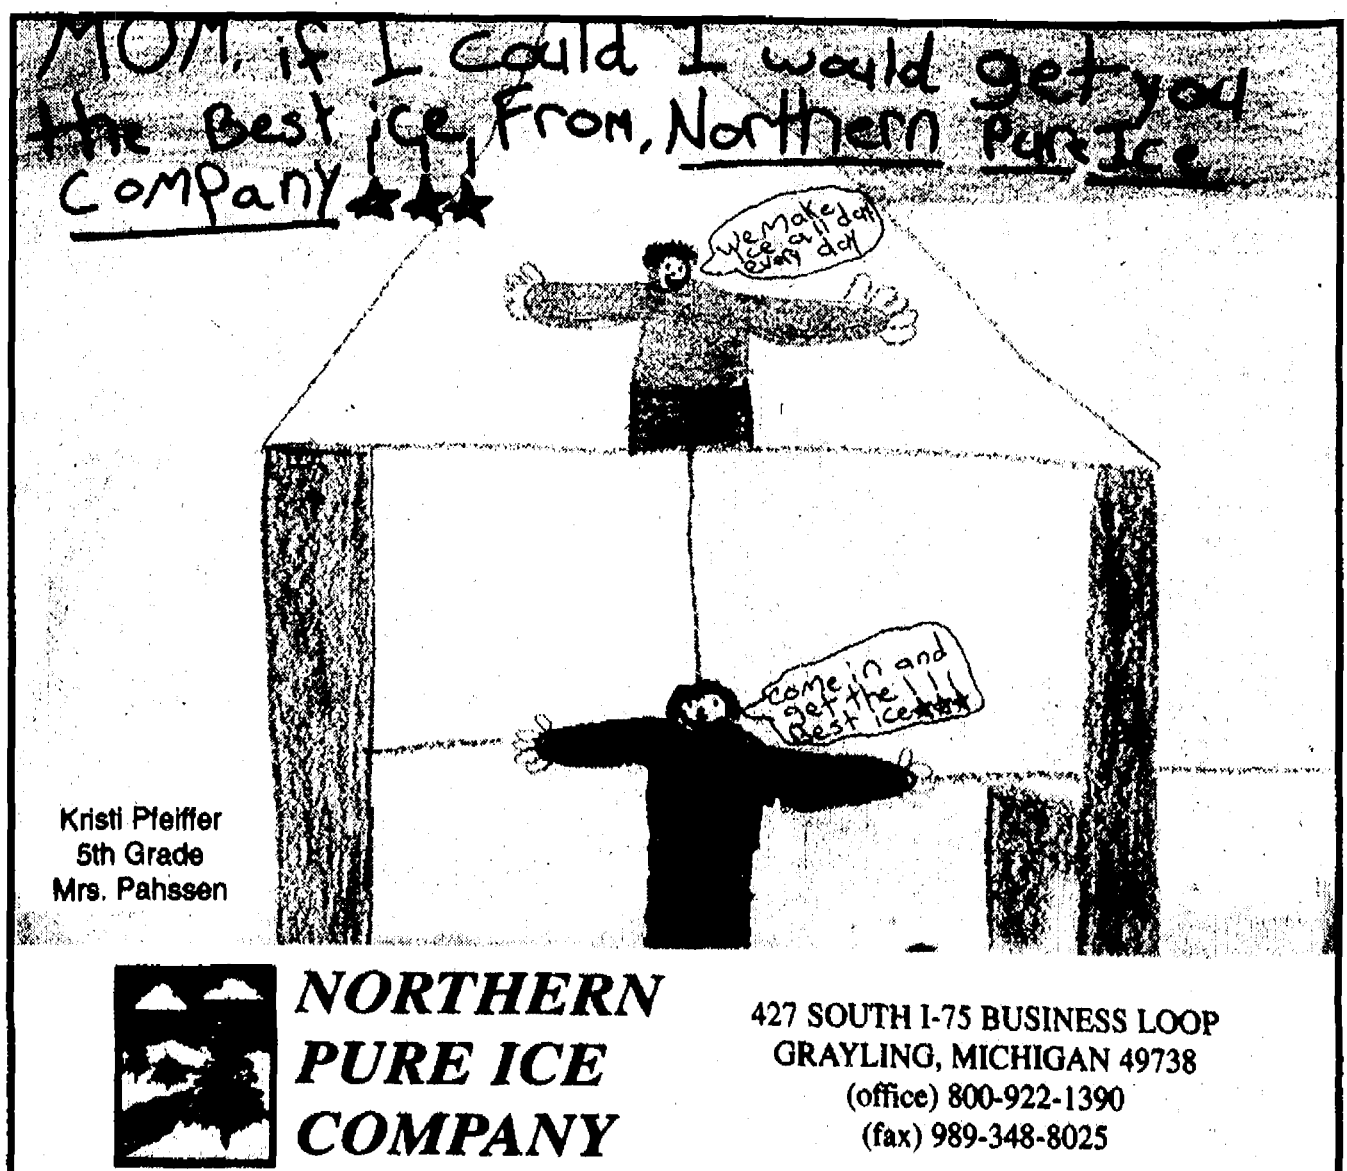 MOM, if I could I would get you
the Best ice, From, Northern Pure Ice
Company
We make
ice all day
every day
come in and
get the !!!
Best ice
Kristi Pfeiffer
5th Grade
Mrs. Pahssen
NORTHERN
PURE ICE
COMPANY
427 SOUTH I-75 BUSINESS LOOP
GRAYLING, MICHIGAN 49738
(office) 800-922-1390
(fax) 989-348-8025